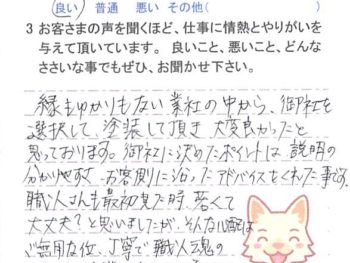 良い 普通 悪い その他(
3 お客さまの声を聞くほど、仕事に情熱とやりがいを
与えて頂いています。 良いこと、悪いこと、どんな
ささいな事でもぜひ、お聞かせ下さい。
縁もゆかりもない業社の中から、御社を
選択して、塗装して頂き大変良かったと
思っております。御社に決めたポイントは、説明の
分かりやすさ、お客側に沿ったアドバイスをくれた事です。
職人さんも最初見た時、若くて
大丈夫?と思いましたが、そんな心配は
ご無用な位、丁寧で職人魂の